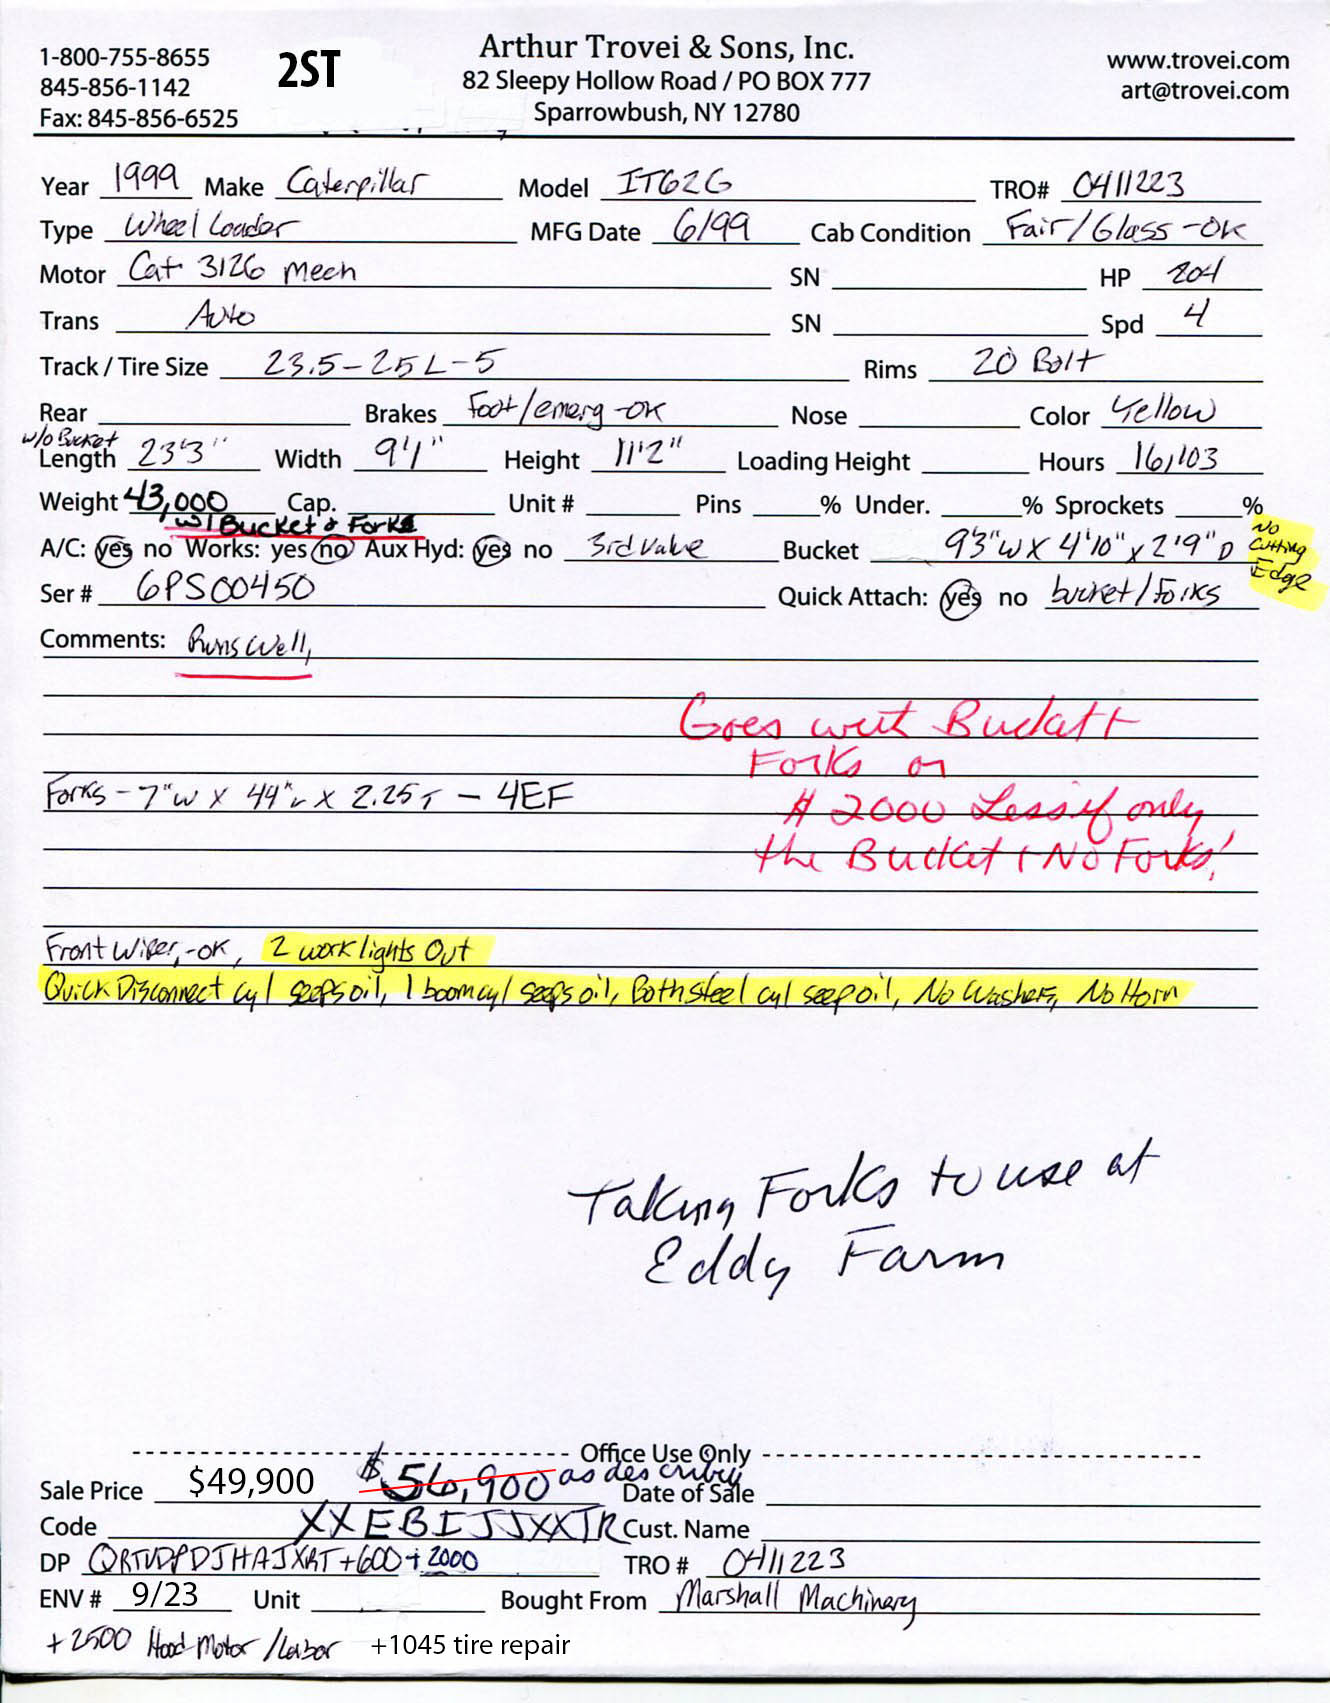 1-800-755-8655
845-856-1142
Fax: 845-856-6525
2ST
Arthur Trovei & Sons, Inc.
82 Sleepy Hollow Road / PO BOX 777
Sparrowbush, NY 12780
www.trovei.com
art@trovei.com
Year 1999 Make Caterpillar Model IT62G TRO# 0411223
Type Wheel Loader MFG Date 6/99 Cab Condition Fair/Glass-OK
Motor Cat 3126 Mech SN HP 204
Trans Auto SN Spd 4
Track / Tire Size 23.5-25 L-5 Rims 20 Bolt
Rear Brakes Foot/emerg-OK Nose Color Yellow
w/o Bucket
Length 23'3" Width 9'1" Height 11'2" Loading Height Hours 16,103
Weight 43,000 Cap. Unit # Pins % Under. % Sprockets %
w/ Bucket & Forks
A/C: yes no Works: yes no Aux Hyd: yes no 3rd Valve Bucket 9'3"W X 4'10" X 2'9" D
No
Cutting
Edge
Ser # 6PS00450 Quick Attach: yes no bucket/Forks
Comments: Runs Well,
Goes wit Buckat +
Forks or
$ 2000 Less if only
the Bucket + No Forks!
Forks - 7"W X 44"L X 2.25 T - 4EF
Front Wiper,-OK, 2 work lights Out
Quick Disconnect cyl seeps oil, 1 boom cyl seeps oil, Both steel cyl seep oil, No Washers, No Horn
Taking Forks to use at
Eddy Farm
Office Use Only
Sale Price $49,900 $56,900 as des cribey Date of Sale
Code XXEBIJJXXTR Cust. Name
DP QRTVDPDJHAJXRT+600+2000 TRO # 0411223
ENV # 9/23 Unit Bought From Marshall Machinery
+2500 Hood Motor /Labor +1045 tire repair